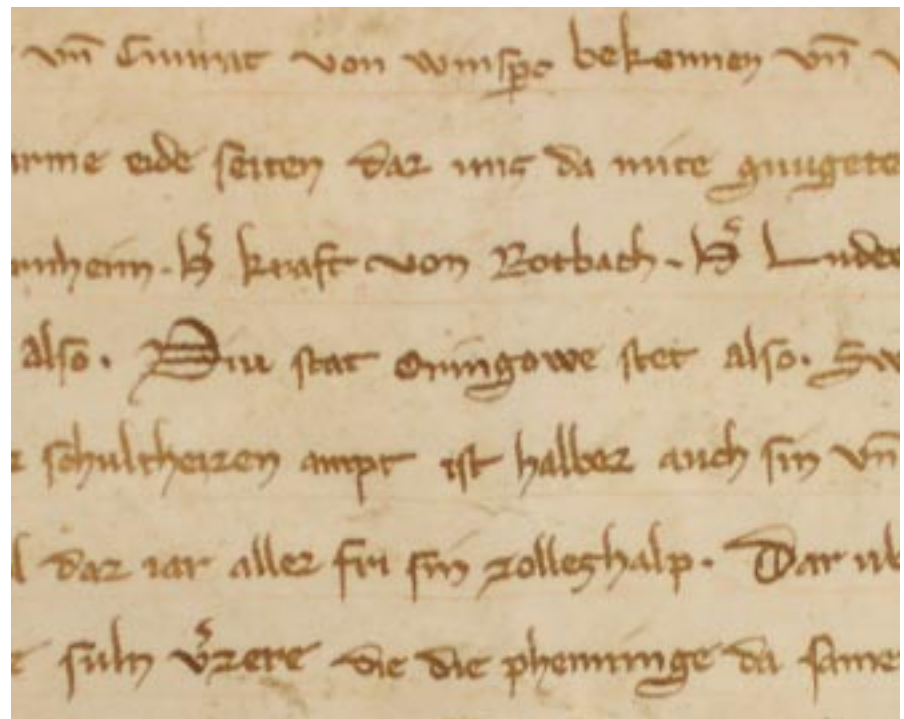 vn̄ Cunrat von winsp̄c bekennen vn̄
eide seiten daz uns da mite gnugete
h̾ kraft von Botbach . h̾ Lude
also . Diu stat Oringowe stet also . Sw
schultheizen ampt ist halbez auch sin vn̄
daz iar allez fri sin zolleshalp . Dar ub
suln v̾zere die die phenninge da same